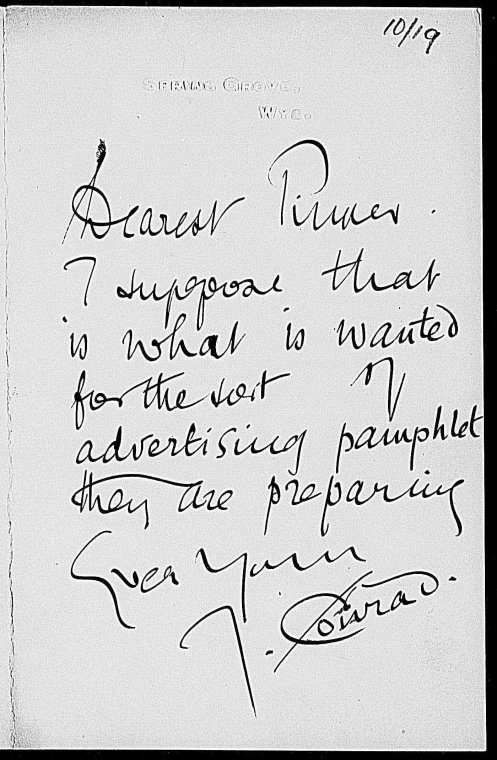 10/19
SPRING GROVE,
WYE.
Dearest Pinker.
I suppose that
is what is wanted
for the sort of
advertising pamphlet
they are preparing
Ever Yours
J. Conrad.